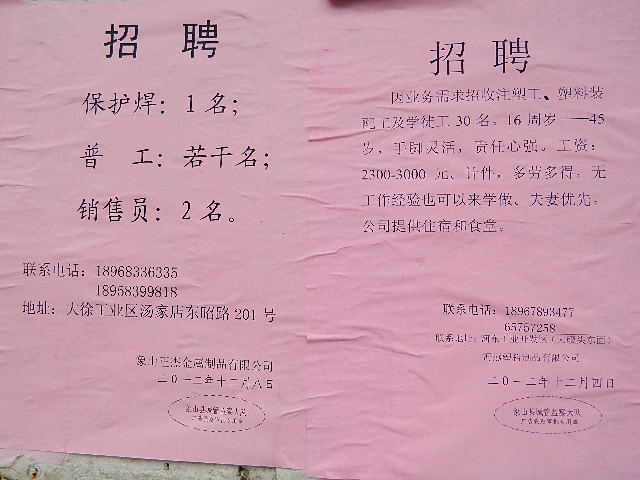 招 聘
保护焊：1 名；
普 工：若干名；
销售员：2 名。
联系电话：18968336335
18958399818
地址：大徐工业区汤家店东昭路 201 号
象山正杰金属制品有限公司
二0一二年十二月八日
象山县城管监察大队
招 聘
因业务需求招收注塑工、塑料装
配工及学徒工 30 名。16 周岁 ——45
岁，手脚灵活，责任心强。工资：
2300-3000 元、计件，多劳多得。无
工作经验也可以来学做、夫妻优先。
公司提供住宿和食堂。
联系电话：18967893477
65757258
联系地址：河东工业开发区（大碶头东面）
塑料制品有限公司
二0一二年十二月四日
象山县城管监察大队